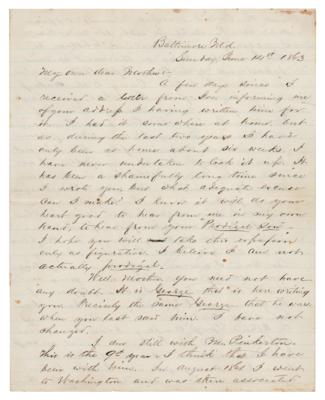 Baltimore Md.
Sunday, June 14th 1863
My own dear Mother:
A few days since I
received a letter from informing me
of your address I having written him for
it. I had it some where at home, but
as, during the last two years I have
only been at home about six weeks, I
have never undertaken to look it up. It
has been a shamefully long time since
I wrote you, but what adequate excuse
can I make? I know it will do your
heart good to hear from me in my own
hand, to hear from your "Prodigal Son".
I hope you will take this expression
only as figurative. I believe I am not
actually prodigal.
Well, Mother you need not have
any doubt. It is George that is here writing
you. Precisely the same George that he was
when you last saw him. I have not
changed.
I am still with Mr. Pinkerton.
This is the 9th year I think that I have
been with him. In August 1861 I went
to Washington and was then associated